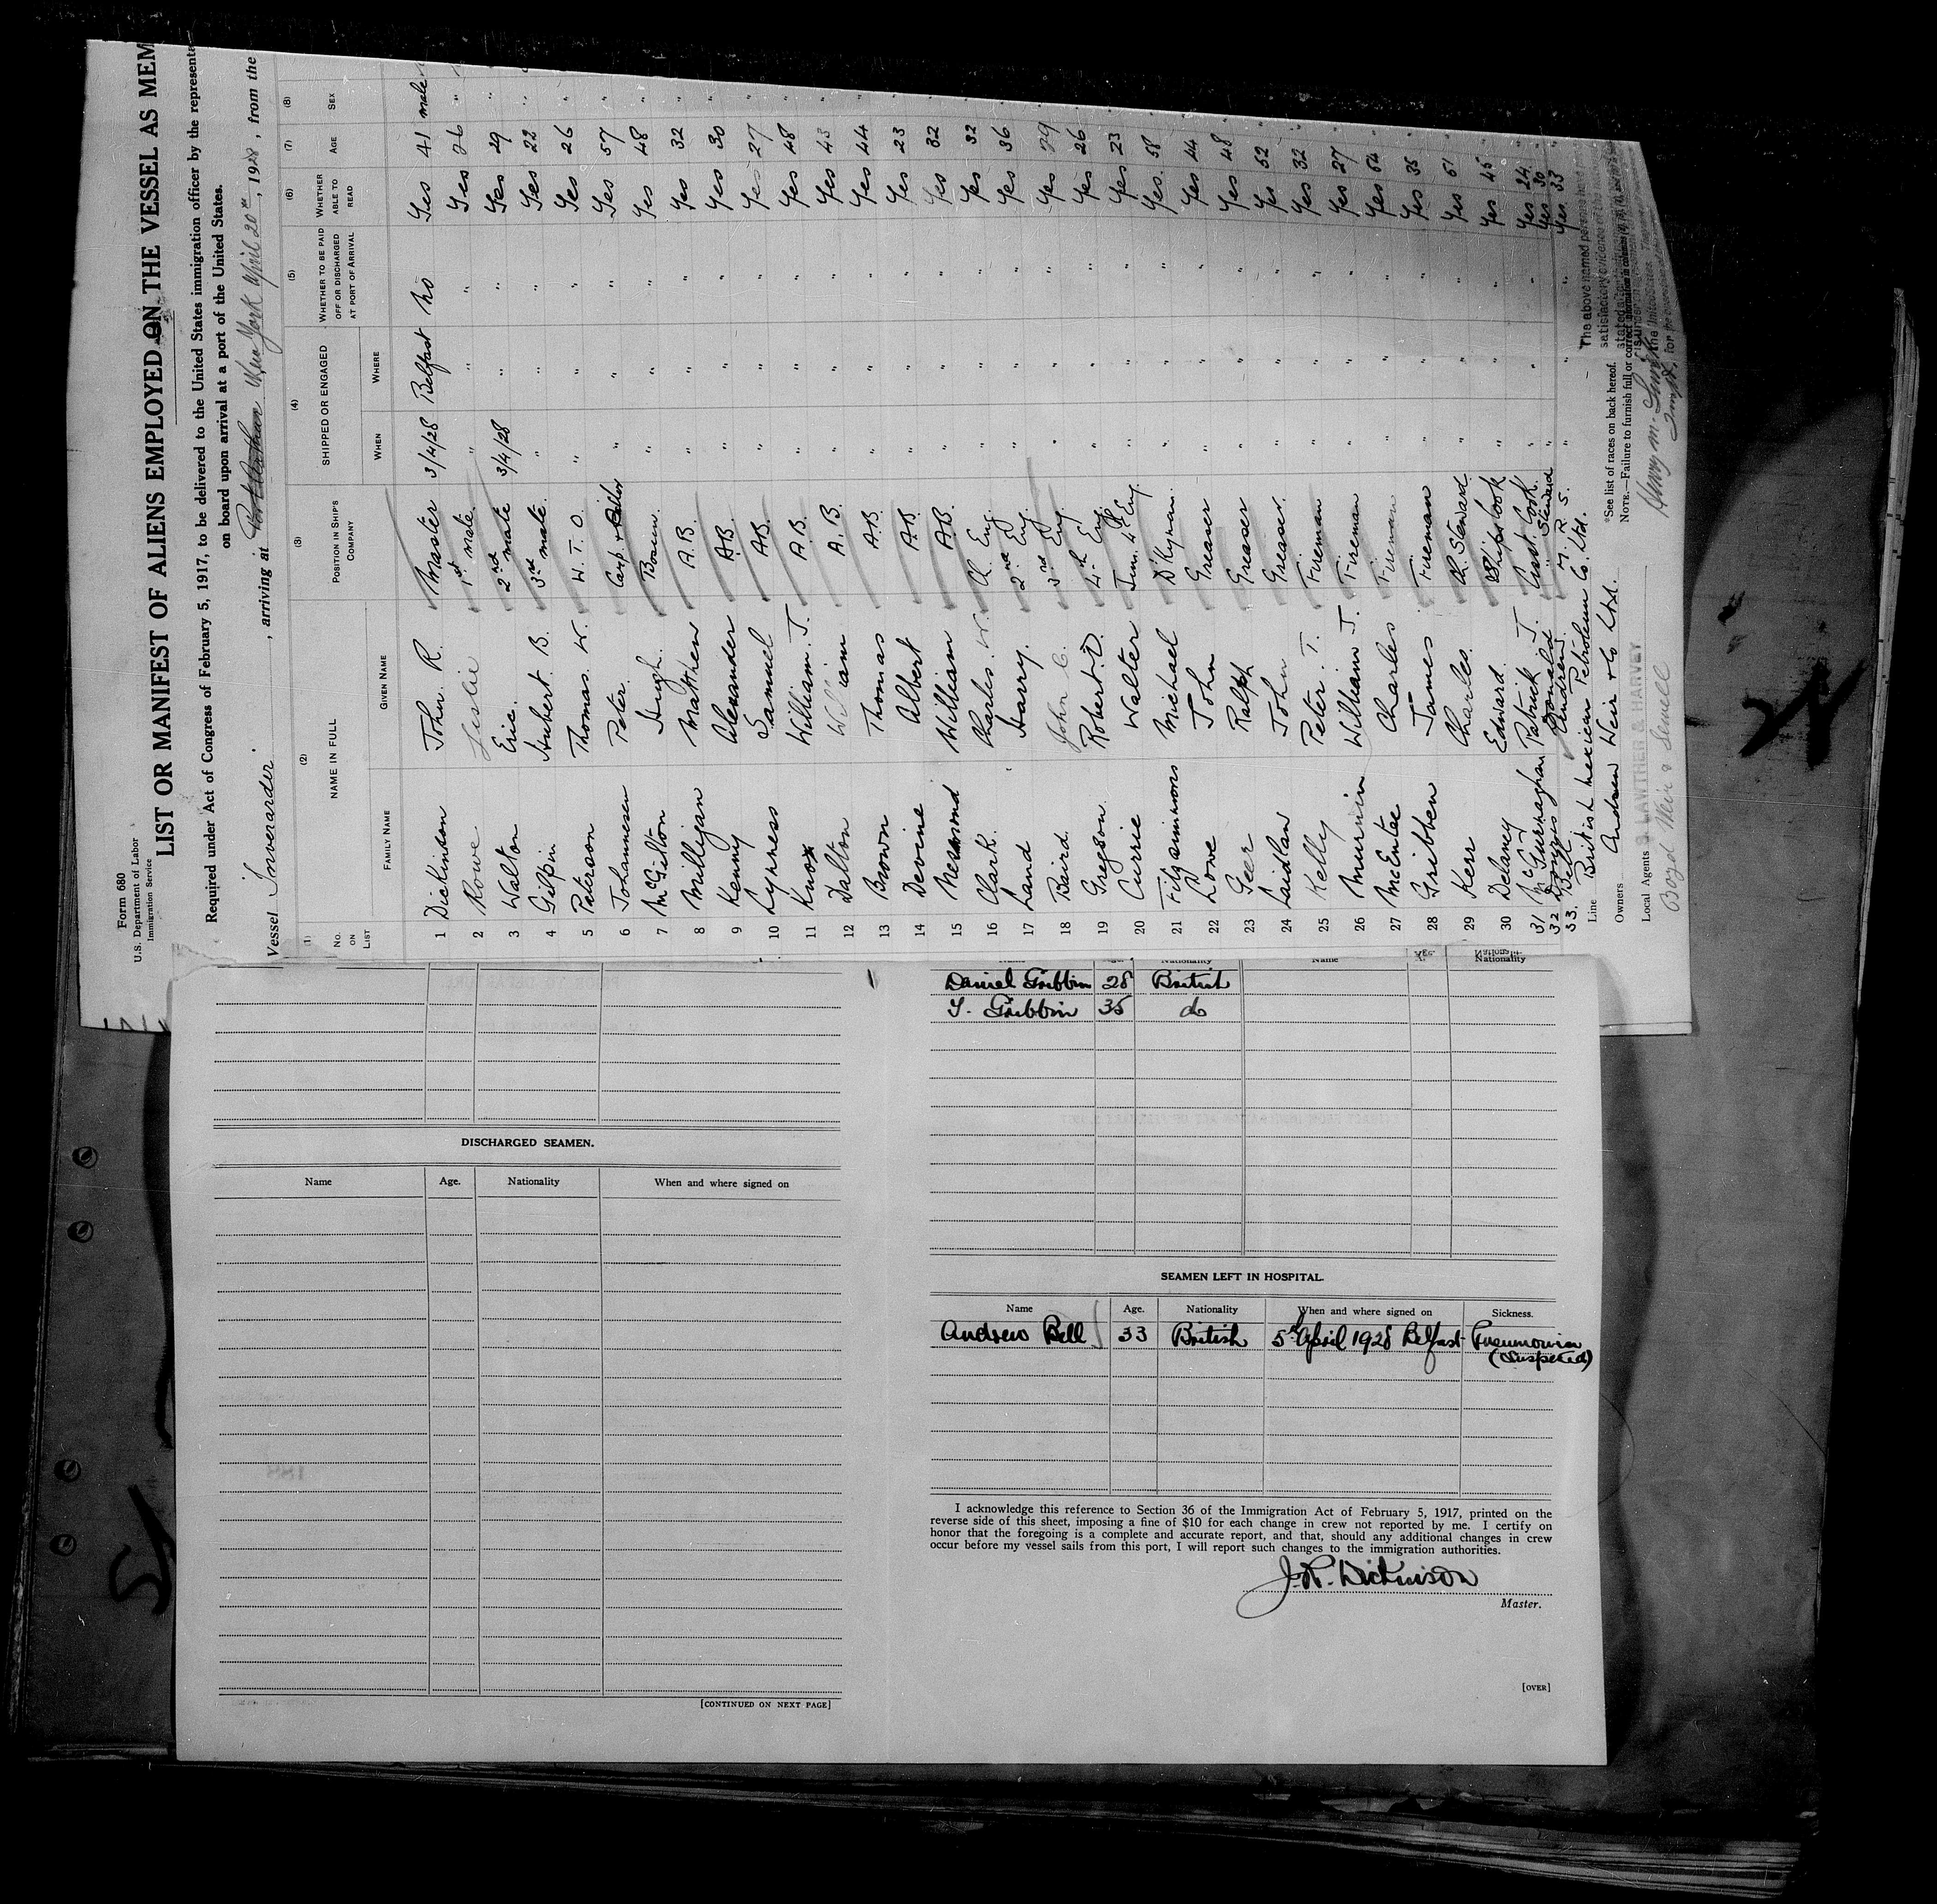 Form 680
U.S. Department of Labor
Immigration Service
LIST OR MANIFEST OF ALIENS EMPLOYED ON THE VESSEL AS MEM
Required under Act of Congress of February 5, 1917, to be delivered to the United States immigration officer by the representa
on board upon arrival at a port of the United States.
Vessel Inverarder, arriving at New York April 20th, 1928, from the
(1) (2) (3) (4) (5) (6) (7) (8)
No. on List NAME IN FULL POSITION IN SHIP'S COMPANY SHIPPED OR ENGAGED WHETHER TO BE PAID OFF OR DISCHARGED AT PORT OF ARRIVAL WHETHER ABLE TO READ AGE SEX
FAMILY NAME GIVEN NAME WHEN WHERE
1 Dickinson John R. Master 3/4/28 Belfast No Yes 41 male
2 Rowe Leslie 1st mate " " " Yes 26 "
3 Walton Eric. 2nd mate 3/4/28 " " Yes 29 "
4 Gilpin Hubert B. 3rd mate " " " Yes 22 "
5 Paterson Thomas. W. W. T. O. " " " Yes 26 "
6 Johannesen Peter. Carp " " " Yes 57 "
7 McGilton Hugh. Bosun. " " " Yes 48 "
8 Milligan Matthew A.B. " " " Yes 32 "
9 Kenny Alexander A.B. " " " Yes 30 "
10 Lyness Samuel A.B. " " " Yes 27 "
11 Knox William. J. A.B. " " " Yes 48 "
12 Dalton William A.B. " " " Yes 43 "
13 Brown Thomas A.B. " " " Yes 44 "
14 Devine Albert A.B. " " " Yes 23 "
15 William A.B. " " " Yes 32 "
16 Clark. Charles. W. Ch. Eng. " " " Yes 32 "
17 Land Harry. 2nd Eng. " " " Yes 36 "
18 Baird. John C. 3rd Eng. " " " Yes 29 "
19 Gregson. Robert. D. 4th Eng. " " " Yes 26 "
20 Currie Walter Jun. 4th Eng. " " " Yes 23 "
21 Fitzsimmons Michael D'Kyman. " " " Yes. 58 "
22 Lowe John Greaser " " " Yes 44 "
23 Geer Ralph Greaser " " " Yes 48 "
24 Laidlaw John Greaser. " " " Yes 52 "
25 Kelly Peter. T. Fireman " " " Yes 32 "
26 Murnin William J. Fireman " " " Yes 27 "
27 McEntee Charles Fireman " " " Yes 64 "
28 Gribben James Fireman " " " Yes 35 "
29 Kerr Charles. Ch. Steward " " " Yes 61 "
30 Delaney Edward. Ship's Cook " " " Yes 45 "
31 McGurnaghan Patrick J. Asst. Cook. " " " Yes 24 "
32 Donald " Steward " Yes 30 "
33. Bell Andrew. M. R. S. " " " Yes 33 "
Line British Mexican Petroleum Co. Ltd.
Owners Andrew Weir & Co Ltd.
Local Agents LAWTHER & HARVEY
Boyd Weir & Sewell
*See list of races on back hereof.
NOTE.—Failure to furnish full or correct
The above named persons
satisfactory evidence
Name Nationality Name Age. Nationality
Daniel Gribbin 28 British
T. Gribbin 35 do
DISCHARGED SEAMEN.
Name Age. Nationality When and where signed on
[CONTINUED ON NEXT PAGE]
SEAMEN LEFT IN HOSPITAL.
Name Age. Nationality When and where signed on Sickness.
Andrew Bell 33 British 5th April 1928 Belfast Pneumonia
(Suspected)
I acknowledge this reference to Section 36 of the Immigration Act of February 5, 1917, printed on the
reverse side of this sheet, imposing a fine of $10 for each change in crew not reported by me. I certify on
honor that the foregoing is a complete and accurate report, and that, should any additional changes in crew
occur before my vessel sails from this port, I will report such changes to the immigration authorities.
J.R. Dickinson
Master.
[OVER]